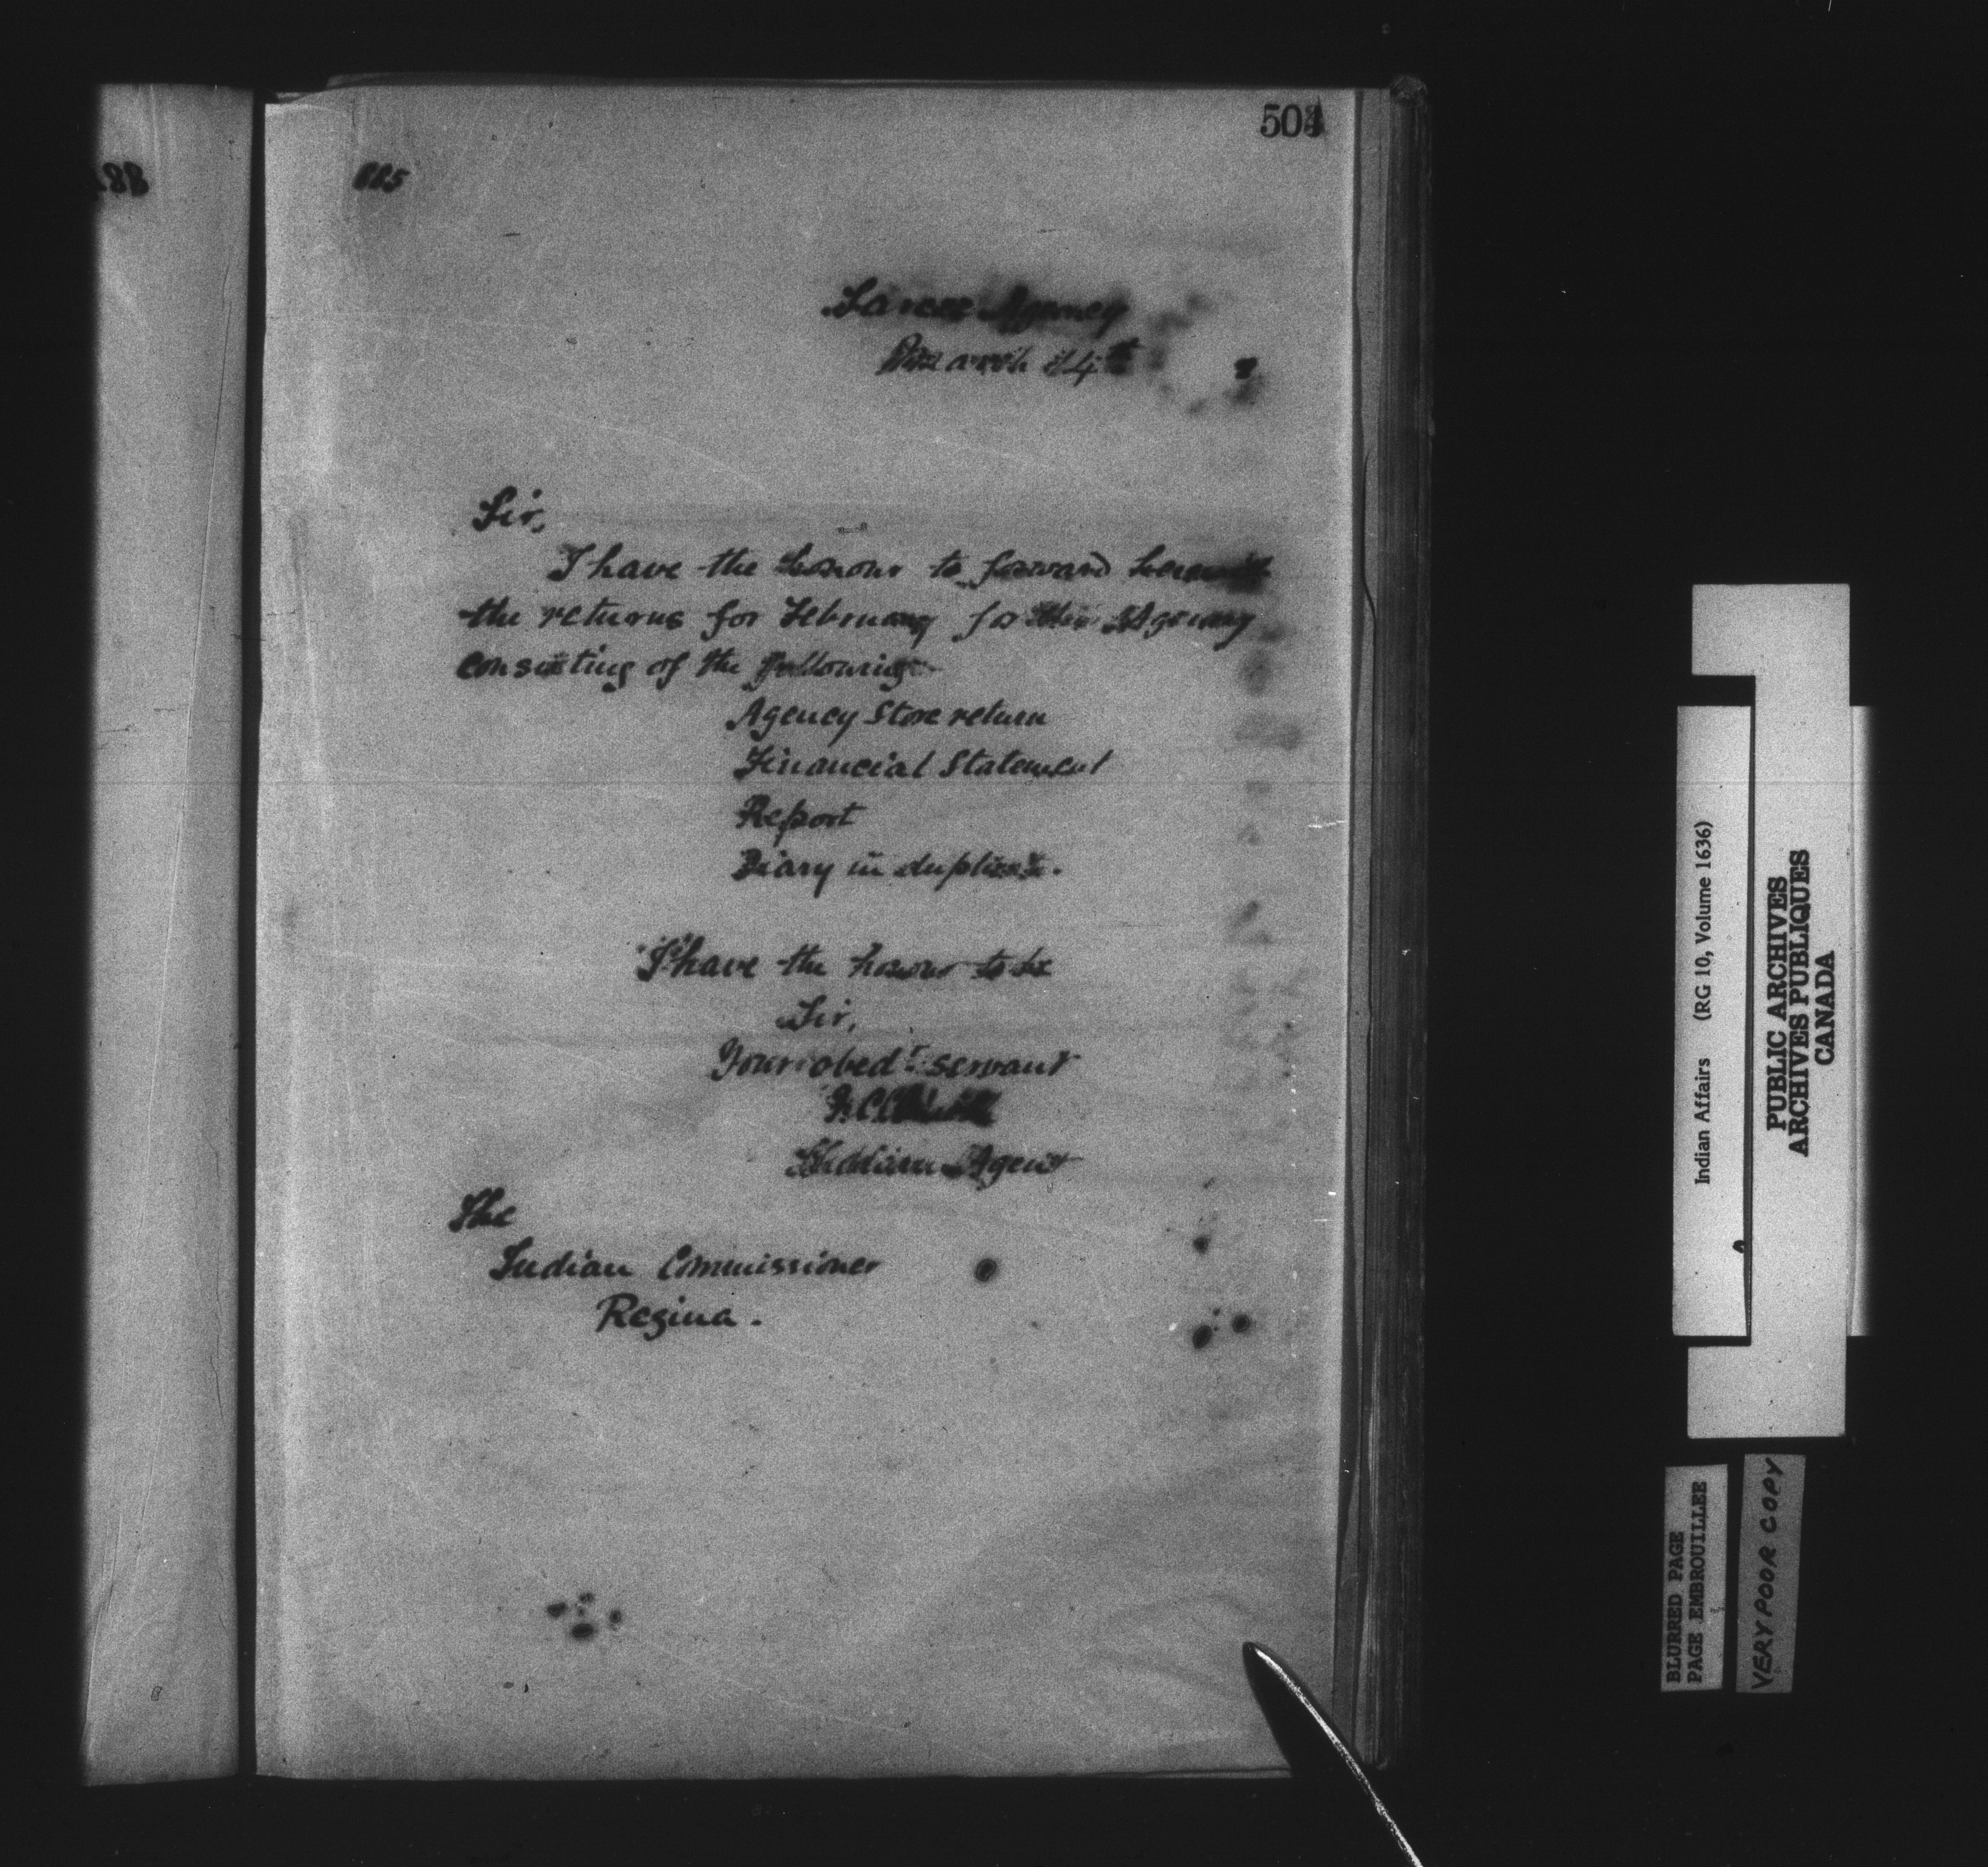 885
Sarcee Agency
March 14th
Sir,
I have the honour to forward herewith
the returns for February for this Agency
consisting of the following
Agency Store return
Financial Statement
Report
Diary in duplicate.
I have the honour to be
Sir,
Your obedt servant
Indian Agent
The
Indian Commissioner
Regina.
Indian Affairs (RG 10, Volume 1636)
PUBLIC ARCHIVES
ARCHIVES PUBLIQUES
CANADA
BLURRED PAGE
PAGE EMBROUILLEE
VERY POOR COPY